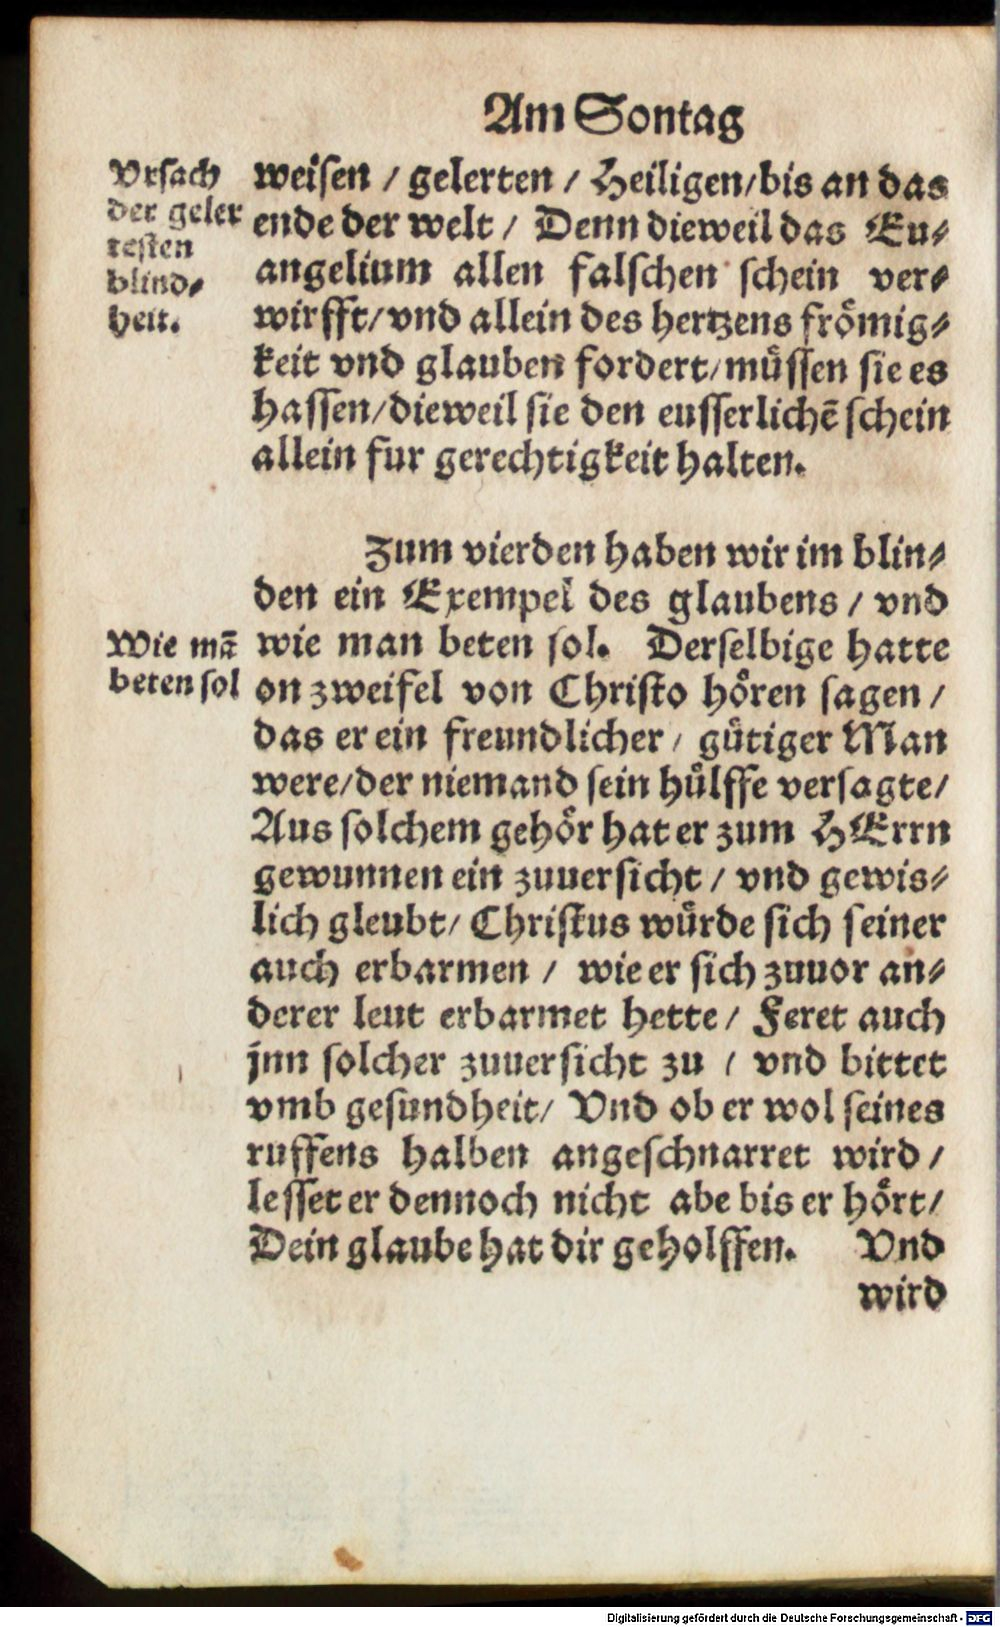 Am Sontag
Vrsach
der geler
testen
blind⸗
heit.
weisen / gelerten / Heiligen/bis an das
ende der welt / Denn dieweil das Eu⸗
angelium allen falschen schein ver⸗
wirfft/vnd allein des hertzens frömig⸗
keit vnd glauben fordert/müssen sie es
hassen/dieweil sie den eusserlichē schein
allein fur gerechtigkeit halten.
Zum vierden haben wir im blin⸗
den ein Exempel des glaubens / vnd
Wie mā
beten sol
wie man beten sol. Derselbige hatte
on zweifel von Christo hören sagen /
das er ein freundlicher / gütiger Man
were/der niemand sein hülffe versagte/
Aus solchem gehör hat er zum HErrn
gewunnen ein zuuersicht / vnd gewis⸗
lich gleubt/ Christus würde sich seiner
auch erbarmen / wie er sich zuuor an⸗
derer leut erbarmet hette / Feret auch
jnn solcher zuuersicht zu / vnd bittet
vmb gesundheit/ Vnd ob er wol seines
ruffens halben angeschnarret wird /
lesset er dennoch nicht abe bis er hört/
Dein glaube hat dir geholffen. Vnd
wird
Digitalisierung gefördert durch die Deutsche Forschungsgemeinschaft - DFG